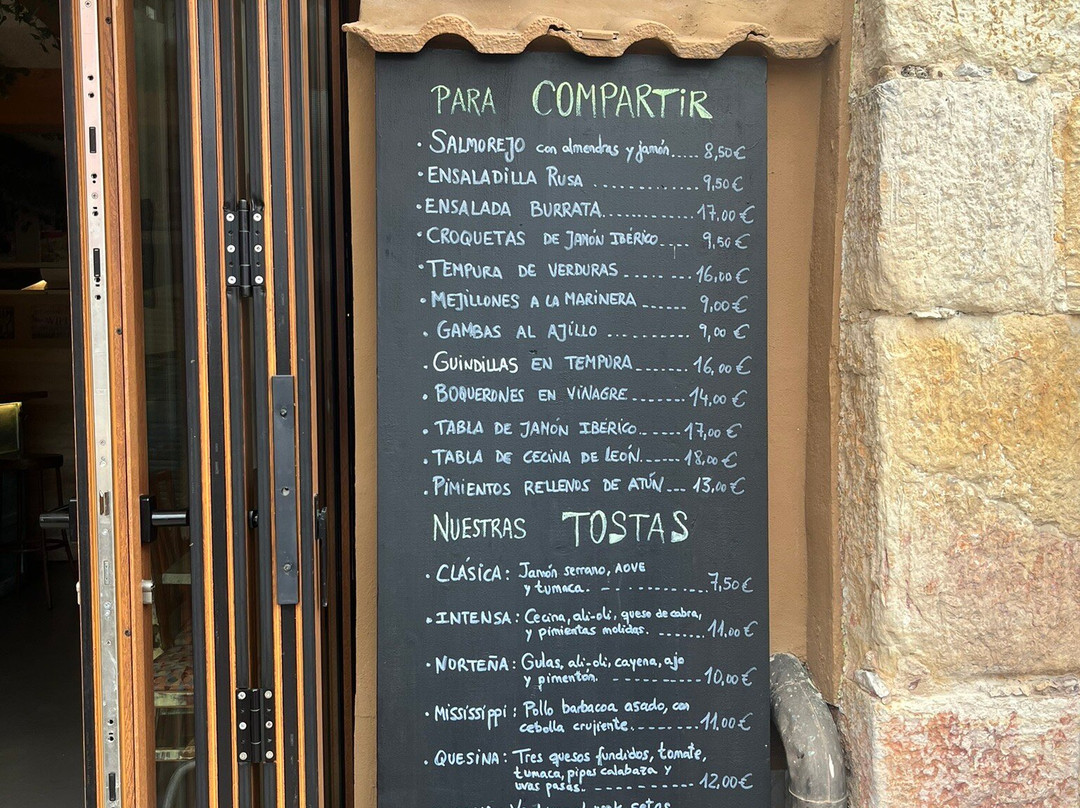 PARA COMPARTIR
· SALMOREJO con almendras y jamón..... 8,50€
· ENSALADILLA RUSA ........... 9,50€
· ENSALADA BURRATA........... 17,00€
· CROQUETAS DE JAMÓN IBÉRICO.... 9,50€
· TEMPURA DE VERDURAS ....... 16,00€
· MEJILLONES A LA MARINERA ...... 9,00€
· GAMBAS AL AJILLO .......... 9,00€
· GUINDILLAS EN TEMPURA....... 16,00€
· BOQUERONES EN VINAGRE....... 14,00€
· TABLA DE JAMÓN IBÉRICO...... 17,00€
· TABLA DE CECINA DE LEÓN...... 18,00€
· PIMIENTOS RELLENOS DE ATÚN... 13,00€
NUESTRAS TOSTAS
· CLÁSICA: Jamón serrano, AOVE
y tumaca. ............. 7,50€
· INTENSA: Cecina, ali-oli, queso de cabra,
y pimientas molidas. ...... 11,00€
· NORTEÑA: Gulas, ali-oli, cayena, ajo
y pimentón. ............ 10,00€
· MISSISSIPPI: Pollo barbacoa asado, con
cebolla crujiente.......... 11,00€
· QUESINA: Tres quesos fundidos, tomate,
tumaca, pipas calabaza y
uvas pasas. ............. 12,00€
setas